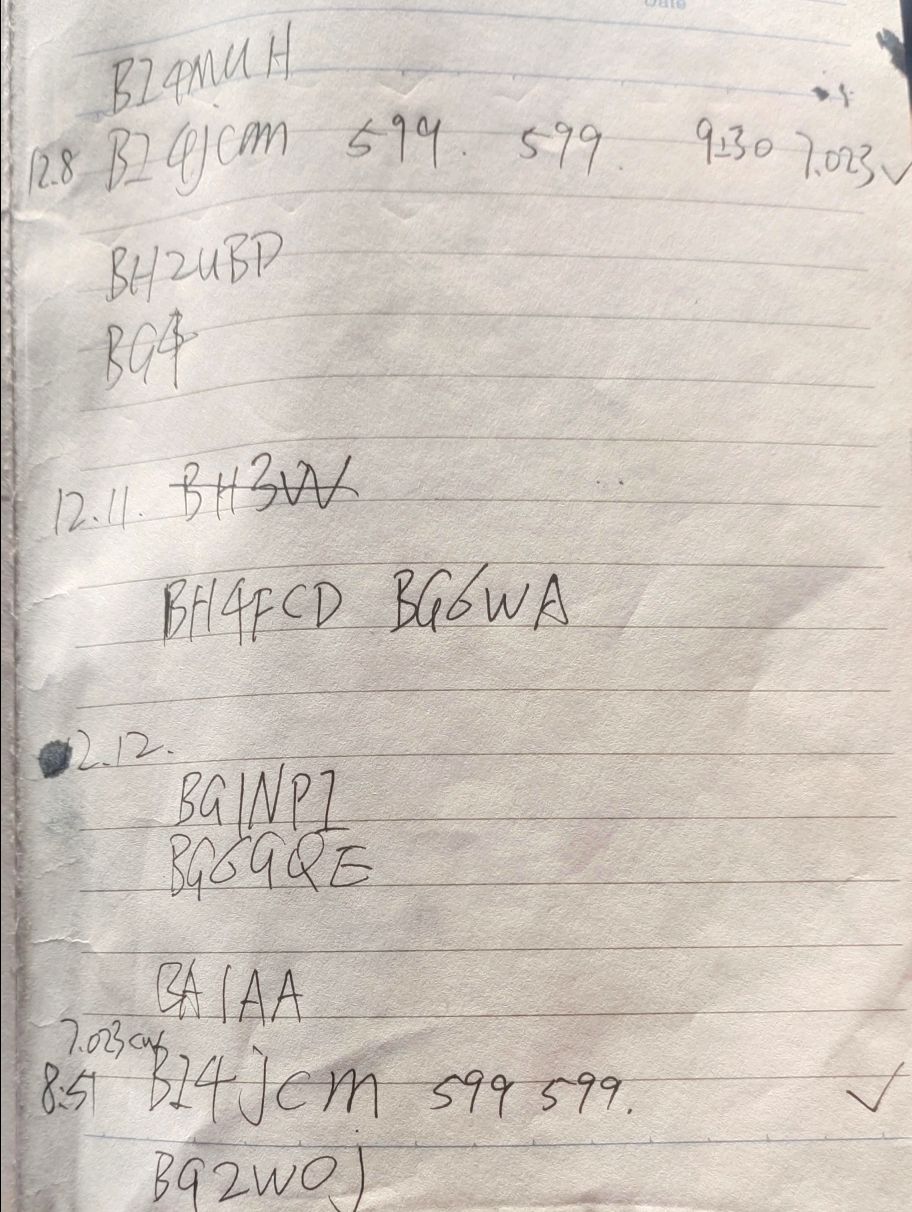 Date
BI4MUH
12.8 BI4JCM 599. 599. 9:30 7.023 ✓
BH2UBD
BG4
12.11. BH3VV
BH4FCD BG6WA
2.12.
BG1NPI
BG6GQE
BA1AA
7.023 cw
8:51 BI4JCM 599 599. ✓
BG2WOJ